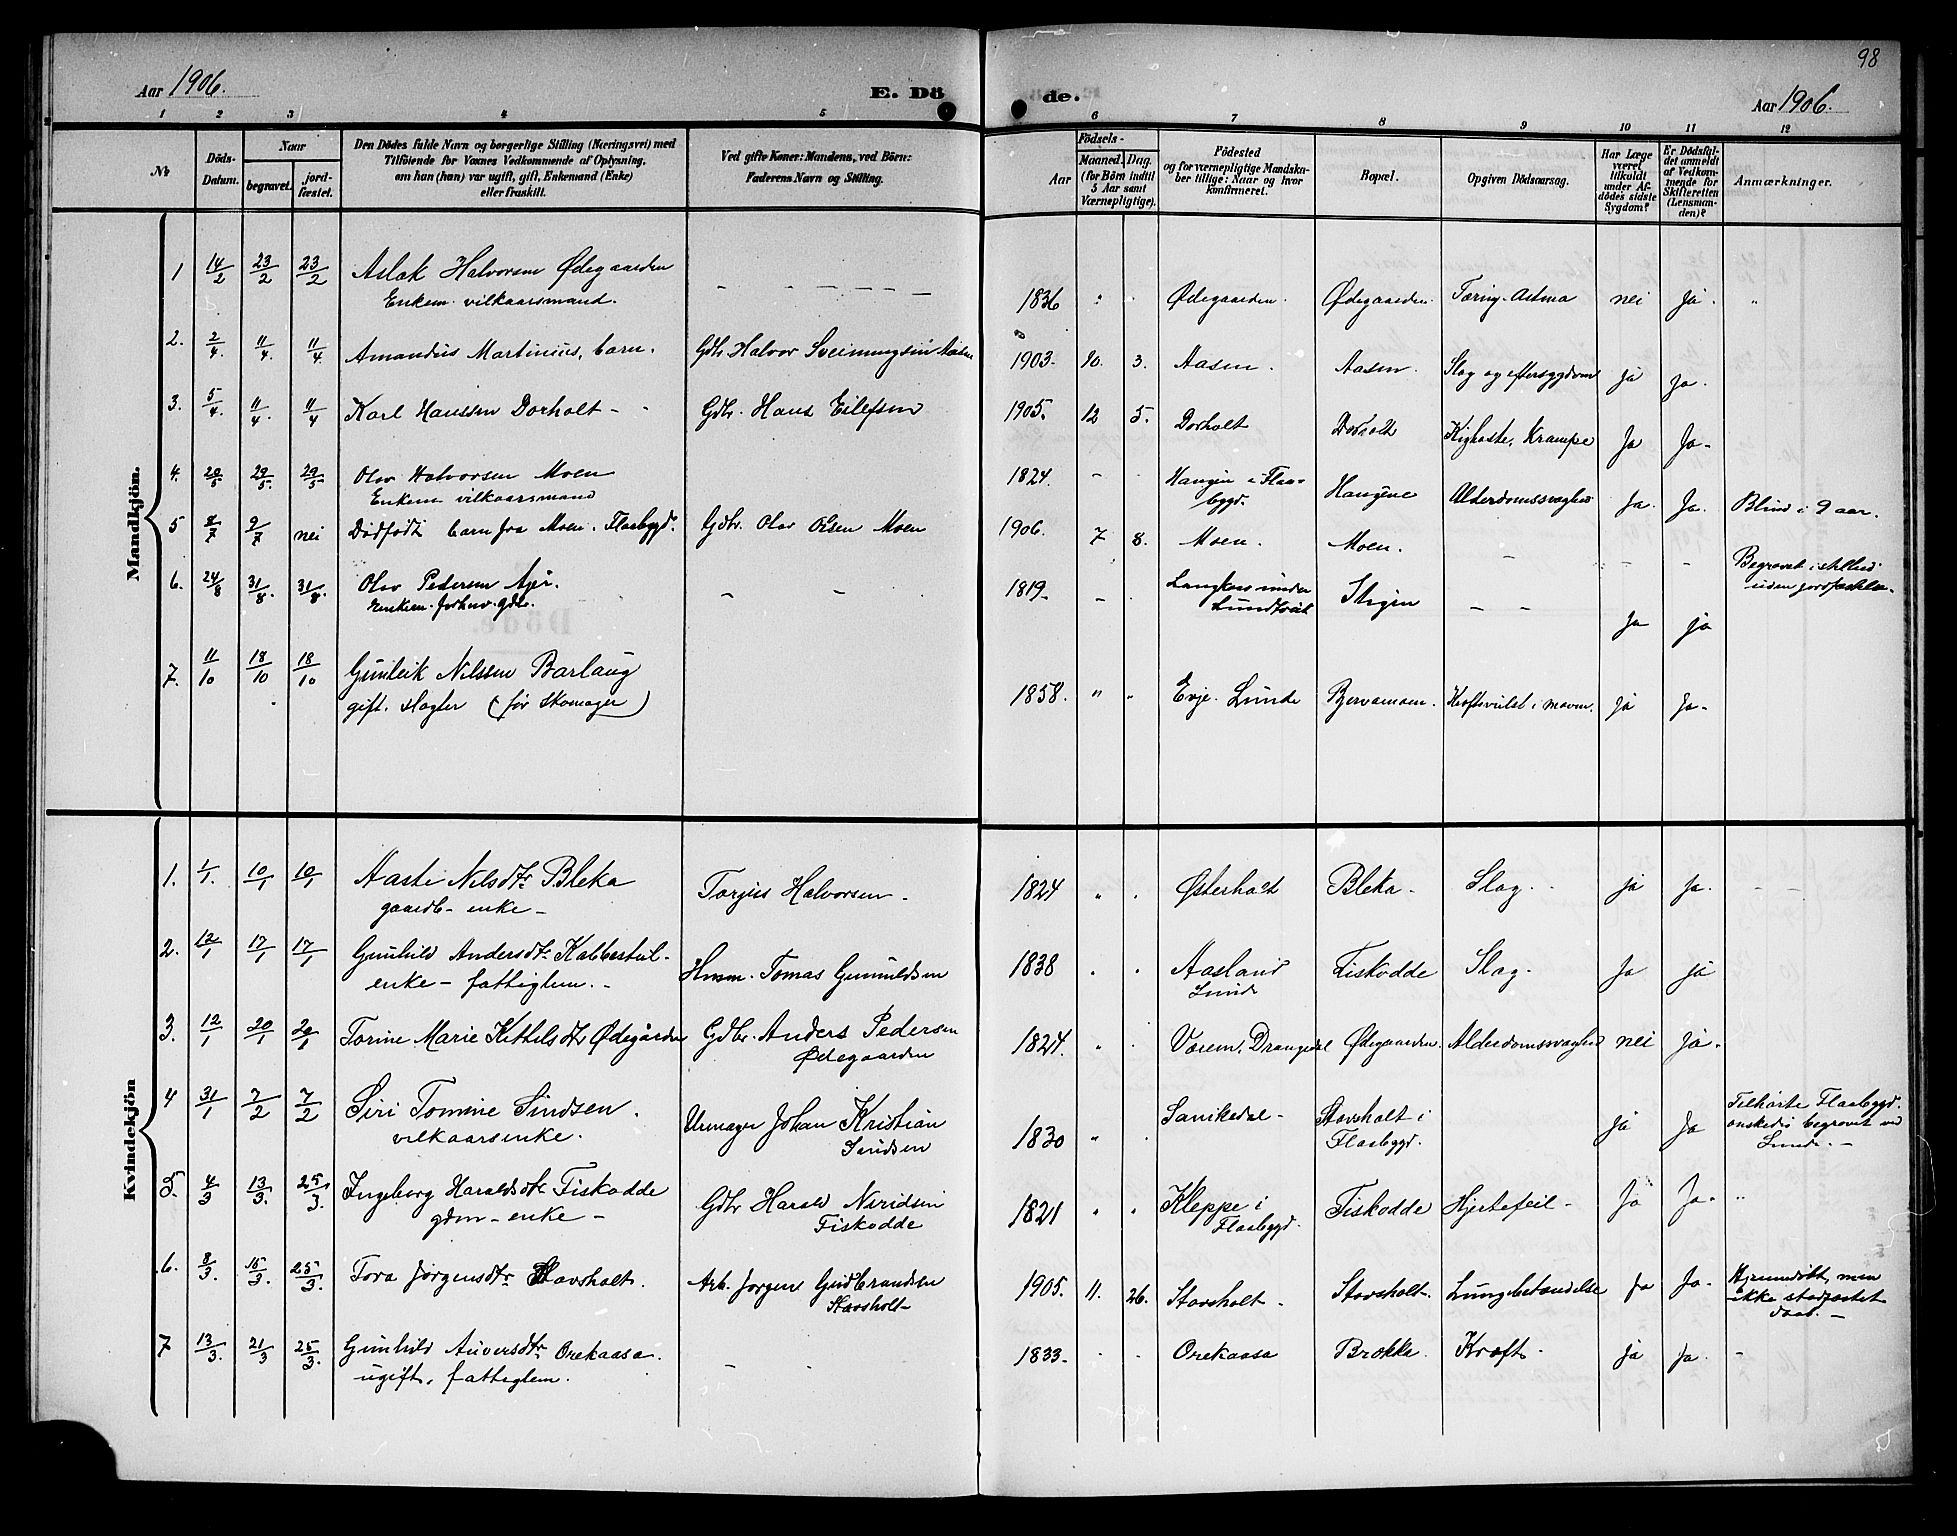 98
Aar 1906.
E. Dö
de.
Aar 1906.
1 2 3 4 5 6 7 8 9 10 11 12
No
Döds-
Datum.
Naar
begravet.
jord-
fæstet.
Den Dödes fulde Navn og borgerlige Stilling (Næringsvei) med
Tilföiende for Voxnes Vedkommende af Oplysning,
om han (hun) var ugift, gift, Enkemand (Enke)
eller fraskilt.
Ved gifte Koner: Mandens, ved Börn:
Faderens Navn og Stilling.
Födsels-
Aar
Maaned. Dag.
(for Börn indtil
5 Aar samt
Værnepligtige).
Födested
og for værnepligtige Mandska-
ber tillige: Naar og hvor
konfirmeret.
Bopæl.
Opgiven Dödsaarsag.
Har Læge
været
tilkaldt
under Af-
dödes sidste
Sygdom?
Er Dödsfal-
det anmeldt
af Vedkom-
mende for
Skifteretten
(Lensman-
den)?
Anmærkninger.
Mandkjön.
1 14/2 23/2 23/2 Aslak Halvorsen Ødegaarden — — — — — — 1836 " " Ødegaarden. Ødegaarden. Tæring-Astma nei Ja. "
Enkem. vilkaarsmand.
2. 2/4. 11/4. 11/4 Amandus Martinius, barn. Gdbr. Halvor Sveinungsen Aasen 1903. 10. 3. Aasen. Aasen. Slag og eftersygdom Ja Ja.
3. 5/4. 11/4 11/4 Karl Hanssen Dorholt - " Gdbr. Hans Eilefsen 1905. 12 5. Dorholt Dorholt Kighoste, Krampe Ja Ja.
4. 20/5 29/5. 29/5 Olav Halvorsen Moen 1824. - - Haugen i Flaa-
bygd. Haugene Alderdomssvaghed Ja. Ja. Blind i 9 aar.
Enkem vilkaarsmand
5 8/7 9/7 nei Dødfødt barn fra Moen. Flaabygd. Gdbr. Olav Olsen Moen 1906. 7 8. Moen. Moen. - - - Begravet i stilhed
uden jordfæstelse.
6. 24/8 31/8. 31/8. Olav Pedersen - - 1819. - Langkaas under
Lundtveit Stigen - - Ja Ja
Enkem. forhenv. gdbr.
7. 11/10 18/10 18/10 Gunleik Nilssen Barlaug 1858. " " Evje. Lunde Bjervamoen. Kræftsvulst i maven. Ja Ja.
gift. slagter (før skomager)
Kvindekjön
1. 1/1. 10/1 10/1 Aaste Nilsdtr. Bleka Torjus Halvorsen. 1824 " " Østerholt Bleka. Slag. Ja Ja. - -
gaardb- enke -
2. 12/1 17/1 17/1 Gunhild Andersdtr. Kabbestul. Hmm. Tomas Gunnuldsen 1838 " " Aasland
Lunde Fiskodde Slag. Ja Ja
enke - fattiglem. -
3. 12/1 20/1 20/1 Torine Marie Kittilsdtr Ødegården Gdbr. Anders Pedersen
Ødegaarden 1824. " " Vorem. Drangedal Ødegaarden. Alderdomssvaghed nei Ja.
4 31/1 7/2 7/2 Siri Tomine Sindsen. Urmager Johan Kristian
Sindsen 1830 " Sanikedal - Stavsholt i
Flaabygd. Ja Ja Tilhørte Flaabygd.
ønskedes begravet ved
Lunde. -
vilkaarsenke.
5. 4/3 13/3. 25/3. Ingeborg Haraldsdtr Fiskodde Gdbr Harald Neridsen
Fiskodde 1821 " " Kleppe i
Flaabygd. Fiskodde Hjertefeil - Ja Ja. "
gdm - enke -
6. 8/3. 15/3. 25/3 Tora Jørgensdtr. Stavsholt. Arb. Jørgen Gudbrandsen
Stavsholt 1905. 11. 26. Stavsholt - Stavsholt. Lungebetændelse Ja Ja. Hjemmedøbt, men
ikke stadfæstet
daab. -
7 13/3. 21/3 25/3. Gunhild Auversdtr. Orekaasa. - - 1833. " " Orekaasa Brokka. Kræft. Ja Ja. -
ugift, fattiglem.